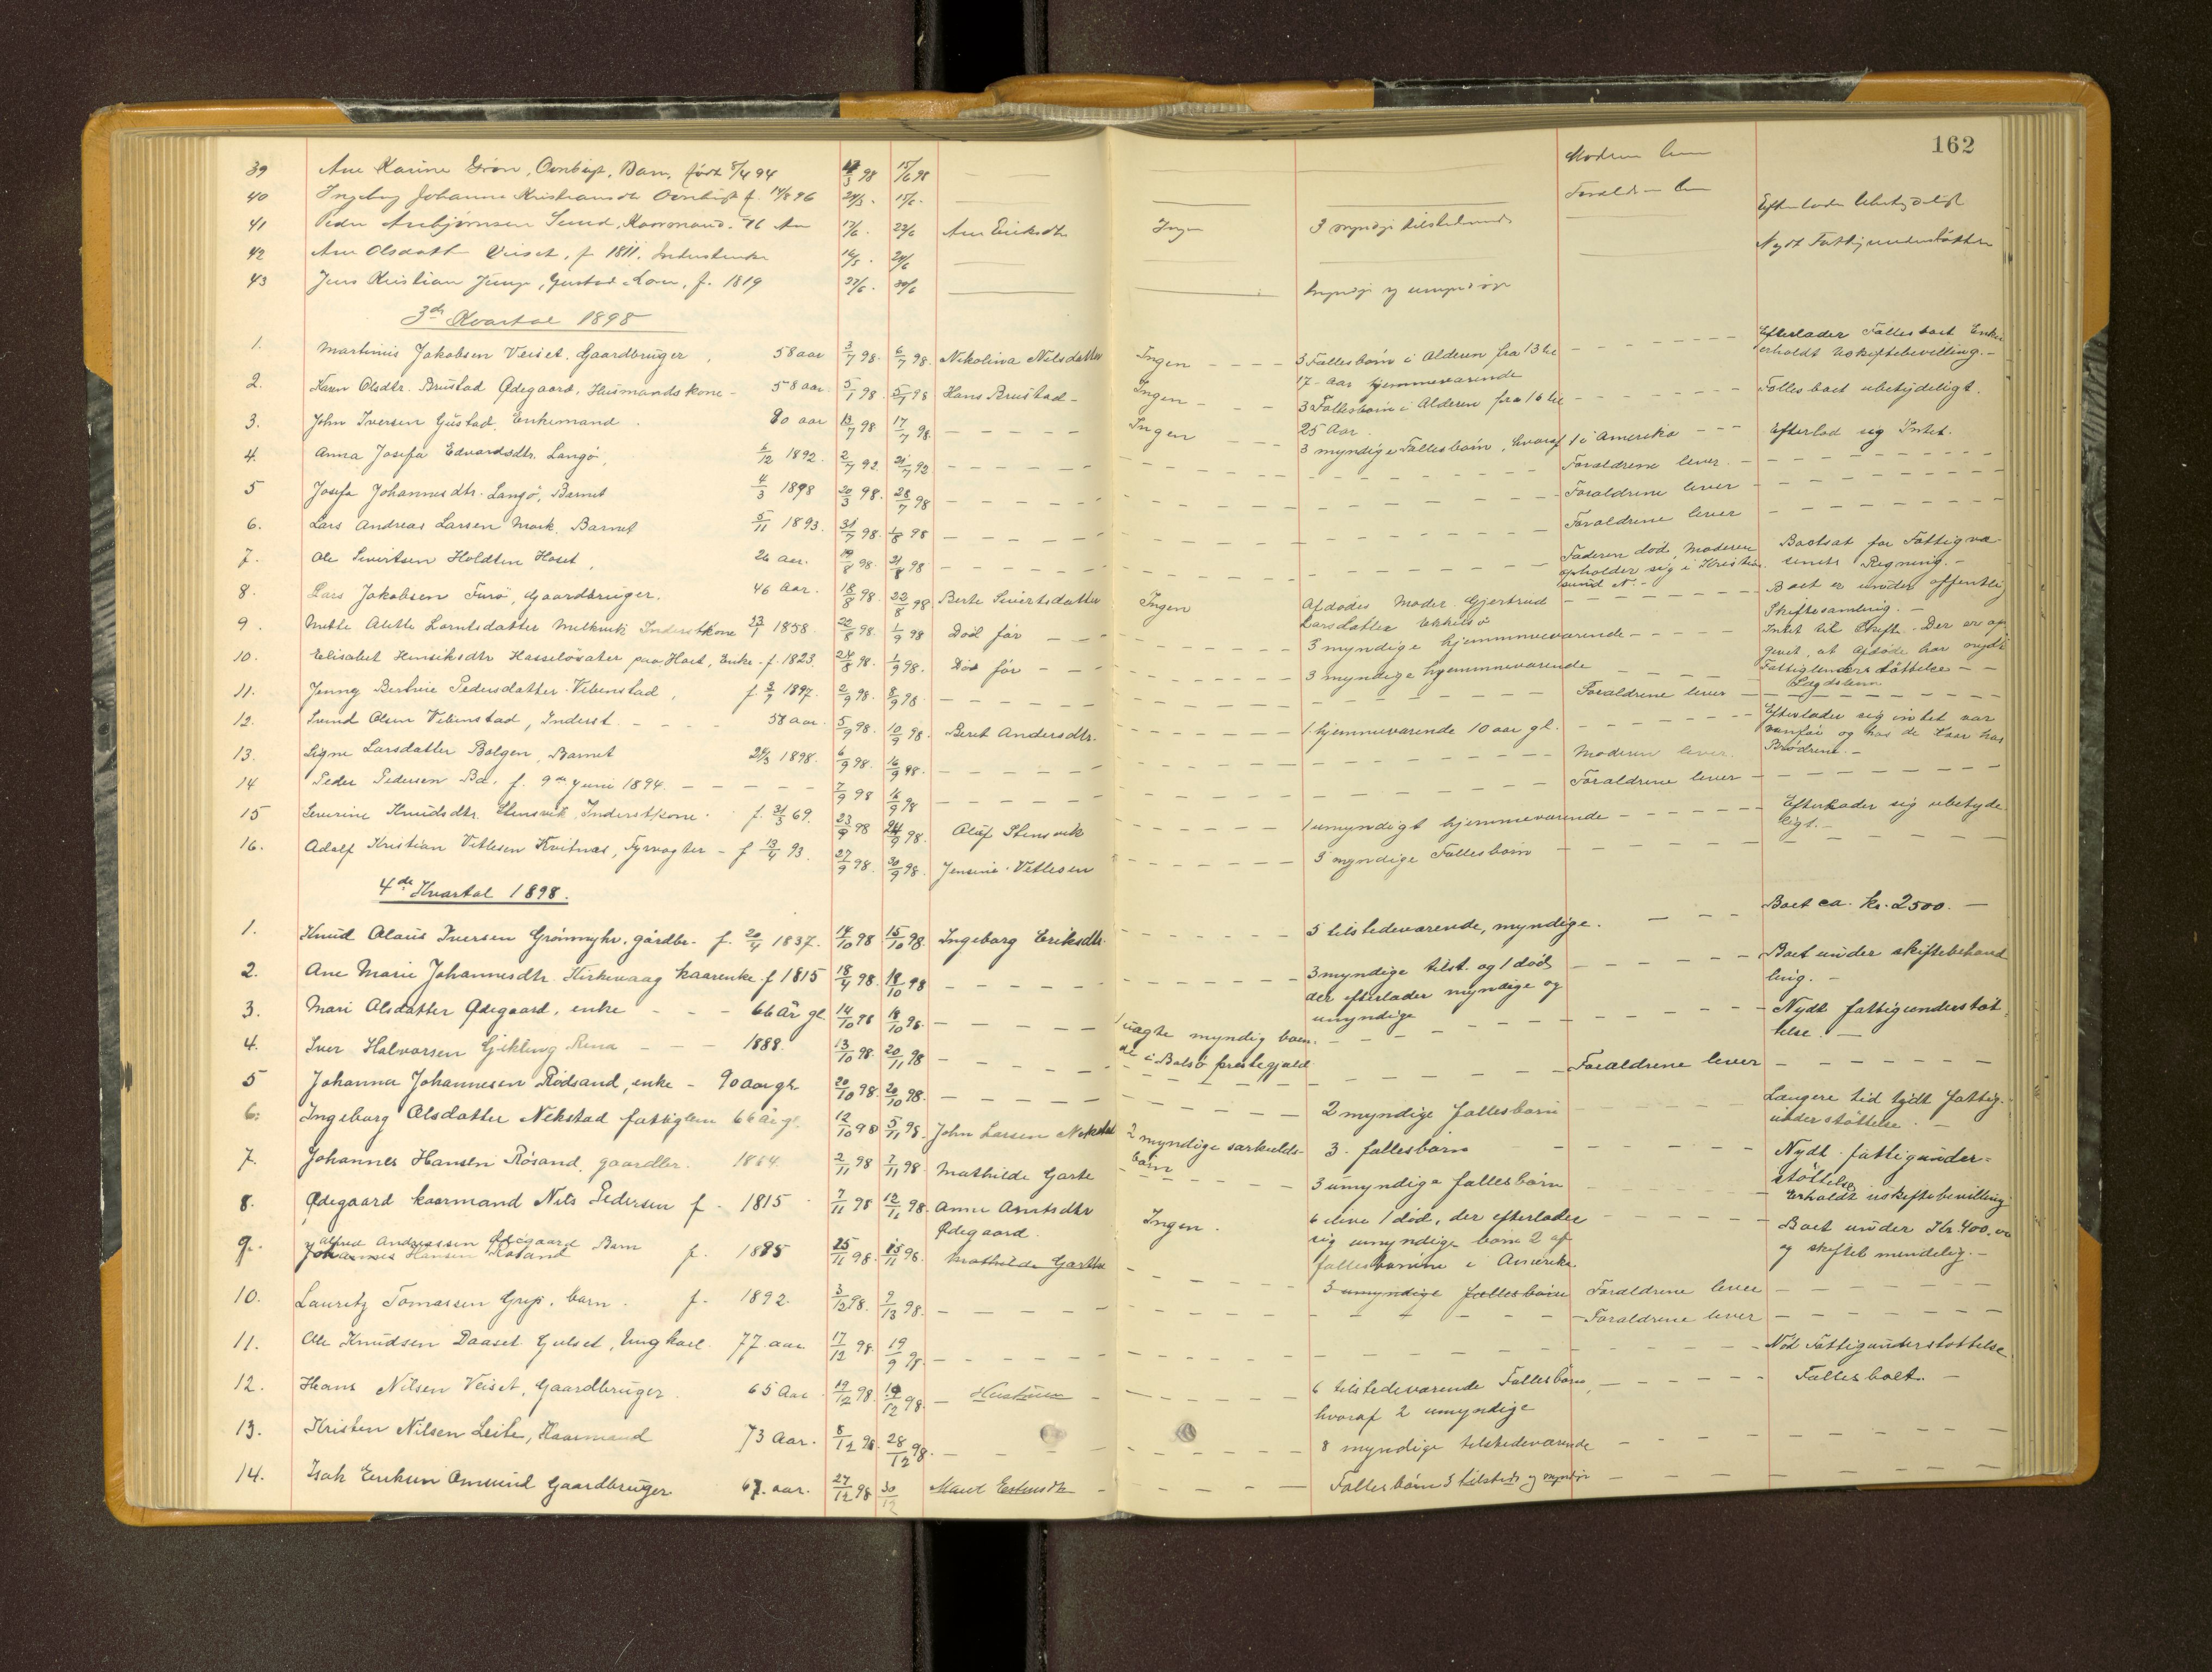 162
39 Ane Karine Grøn, Barn, født 8/4 94 98 15/6 98 Moderen lever
40 Ingeborg Johanne f. 14/8 96 24/3 15/6 Foreldrene lever
41 Peder Sund, Kaarmand. 76 Aar 17/6 22/6 Ane Eriksdtr Ingen 3 myndige tilstedevær. Efterlader Ubetydeligt
42 Ane Olsdatt Veiset, f. 1811. 24/6 Nydt Fattigunderstøttelse
43 Jens Kristian f. 1819 27/6 30/6 myndige og umyndige
3die Kvartal 1898
1. Martinus Jakobsen Veiset. Gaardbruger, 58 aar 3/7 98. 6/7 98. Nikolina Nilsdatter Ingen - - - 3 Fællesbørn i Alderen fra 13 til 17 Aar hjemmeværende Efterlader Fællesboet Enken erholdt uskiftebevilling. -
2. Karen Olsdtr. Brustad Ødegaard, Husmandskone - 58 aar. 5/1 98. 5/7 98 Hans Brustad - Ingen - 3 Fællesbørn i Alderen fra 16 til 25 Aar Fællesboet ubetydeligt.
3. John Iversen Gustad. Enkemand. 80 aar 13/7 98. 17/7 98. - Ingen - 3 myndige Fællesbørn, hvoraf 1 i Amerika - - - Efterlod sig Intet.
4. Anna Josefa Edvardsdtr. Langø, 6/12 1892. 2/7 92. 21/7 92 - Foraldrene lever. -
5 Josefa Johannesdtr. Langø, Barnet 4/3 1898 20/3 98. 28/7 98 - Foraldrene lever -
6. Lars Andreas Larsen Mork. Barnet 5/11 1893. 31/7 98. 1/8 98 - Foraldrene lever -
7. Ole Sivertsen Holdten Hoset, 26 aar. 19/8 98. 21/8 98 - Faderen død, Moderen opholder sig i Kristiansund N. - Bortsat for Fattigvæsenets Regning. -
8. Lars Jakobsen Furø, Gaardbruger. 46 Aar. 18/8 98. 22/8 98. Berte Sivertsdatter Ingen Afdødes Moder Gjertrud Larsdatter Ekkilsø Boet er under offentlig Skiftesamling. -
9. Mette Aletle Larntsdatter Melkvik Inderstkone 23/1 1858. 22/8 98. 1/9 98 Død før - 3 myndige hjemmeværende - Intet til Skifte. Der er opgivet, at Afdøde har nydt Fattigunderstøttelse -
10. Elisabet Henriksdtr Hasseløvater paa Hoset, Enke - f. 1823. 24/8 98. 1/9 98. Død før - 3 myndige hjemmeværende - Lægdslem
11. Jenny Bertine Pedersdatter Vebenstad, f. 3/7 1897. 2/9 98. 8/9 98. - Foraldrene lever -
12. Svend Olsen Vebenstad, Inderst. - 58 aar. 5/9 98. 10/9 98. Beret Andersdtr. - 1 hjemmeværende 10 aar gl. - Efterlader sig intet var vanfør og hos de Kaar hos Brødrene. -
13. Signe Larsdatter Bolgen, Barnet 24/3 1898. 6/9 98. 16/9 98. - Moderen lever.
14 Peder Pedersen Bæ. f. 9de Juni 1894. - 7/9 98 16/9 98 - Foraldrene lever -
15 Severine Knudsdtr. Stensvik, Inderstkone. f. 31/3 69. 23/9 98 24/9 98. Oluf Stensvik - 1 umyndigt hjemmeværende - Efterlader sig ubetydeligt. -
16. Adolf Kristian Vitlesen Kvitnæs, Fyrvogter - f 13/4 93. 27/9 98. 30/9 98. Jensine Vetlesen - 3 myndige Fællesbørn -
4de Kvartal 1898.
1. Knud Olaus Iversen Grønmyhr, gårdbr. f. 20/4 1837. 14/10 98 15/10 98. Ingeborg Eriksdtr. - 5 tilstedeværende, myndige. - Boet ca. kr. 2500. -
2. Ane Marie Johannesdtr. Kirkevaag kaarenke f 1815 18/4 98. 18/10 98 - 3 myndige tilst. og 1 død, der efterlader myndige og umyndige - Boet under skiftebehandling. -
3. Mari Olsdatter Ødegaard, enke - - 66 år gl 14/10 98 18/10 98. - 1 uægte myndig boende i Bolsø prestegjæld - Nydt fattigunderstøttelse. -
4. Iver Halvorsen Gjikling Rena - - 1888. 13/10 98. 20/11 98 - Foraldrene lever -
5 Johanna Johannesen Rødsand, enke - 90 aar gl. 20/10 98. 20/10 98. - 2 myndige fællesbørn Længere tid nydt fattigunderstøttelse. -
6. Ingeborg Olsdatter Nekstad fattiglem 66 år gl. 12/10 98 5/11 98. John Larsen Nekstad 2 myndige særkuldsbørn 3. fællesbørn - Nydt fattigunderstøttelse
7. Johannes Hansen Røsand, gaardbr. 1864 2/11 98 7/11 98. Mathilde Garte - 3 umyndige fællesbørn Erholdt uskiftebevilling
8. Ødegaard kaarmand Nils Pedersen f. 1815 7/11 98 12/11 98. Anne Arntsdtr Ødegaard. Ingen. 6 live 1 død, der efterlader sig umyndige børn 2 af fællesbørnene i Amerika. Boet under Kr 400.00 og skiftet mindelig. -
9. Alfred Andreassen Ødegaard Barn f. 1885 25/11 98. 25/11 98. Mathilde Garthe - 3 umyndige fællesbørn Foraldrene lever -
Johannes Hansen Rosand
10. Lauritz Tomassen Grip, barn. f. 1892. 3/12 98. 9/13 98. - Foraldrene lever -
11. Ole Knudsen Daaset Gulset, Ungkarl. 77 aar 17/12 98. 19/9 98. - Nød Fattigunderstøttelse.
12. Hans Nilsen Veiset, Gaardbruger. 65 Aar. 19/12 98. 19/12 98. - Hustruen - 6 tilstedeværende Fællesbørn, hvoraf 2 umyndige Fællesboet. -
13. Kristen Nilsen Leite, Kaarmand 73 Aar. 8/12 98. 28/12 98. - 8 myndige tilstedeværende -
14. Isak Eriksen Omsund Gaardbruger 67. aar. 27/12 98 30/12 Marit - Fællesbørn 3 tilsteds og myndige -